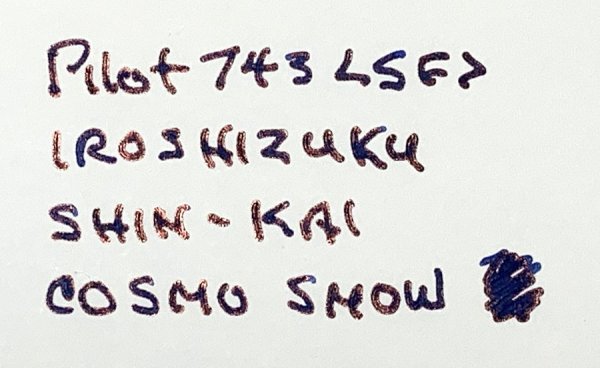 Pilot 743 <SF>
IROSHIZUKU
SHIN-KAI
COSMO SNOW